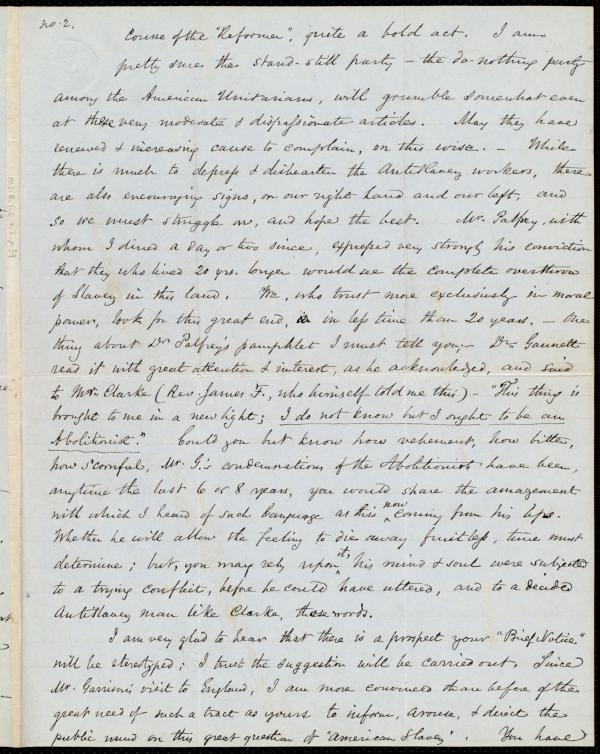 no. 2.
course of the "Reformer", quite a bold act. I am
pretty sure the stand-still party – the do-nothing party
among the American Unitarians, will grumble somewhat even
at these very moderate & dispassionate articles. May they have
renewed & increasing cause to complain, on this wise. – While
there is much to depress & dishearten the Antislavery workers, there
are also encouraging signs, on our right hand and our left, and
so we must struggle on, and hope the best. Mr. Palfrey, with
whom I dined a day or two since, expressed very strongly his conviction
that they who lived 20 yrs. longer would see the complete overthrow
of Slavery in this land. We, who trust more exclusively in moral
power, look for this great end, in less time than 20 years. – One
thing about Dr. Palfrey's pamphlet I must tell you;– Dr. Gannett
read it with great attention & interest, as he acknowledged, and said
to Mr. Clarke (Rev. James F., who himself told me this) – "This thing is
brought to me in a new light; I do not know but I ought to be an
Abolitionist." Could you but know how vehement, how bitter,
how scornful, Mr. G.'s condemnations of the Abolitionists have been,
anytime the last 6 or 8 years, you would share the amazement
with which I heard of such language as this now coming from his lips.
Whether he will allow the feeling to die away fruitless, time must
determine; but, you may rely upon it, his mind & soul were subjected
to a trying conflict, before he could have uttered, and to a decided
Antislavery man like Clarke, these words.
I am very glad to hear that there is a prospect your "Brief Notice"
will be stereotyped; I trust the suggestion will be carried out. Since
Mr. Garrison's visit to England, I am more convinced than before of the
great need of such a tract as yours to inform, arouse, & direct the
public mind on this great question of 'American Slavery'. You have